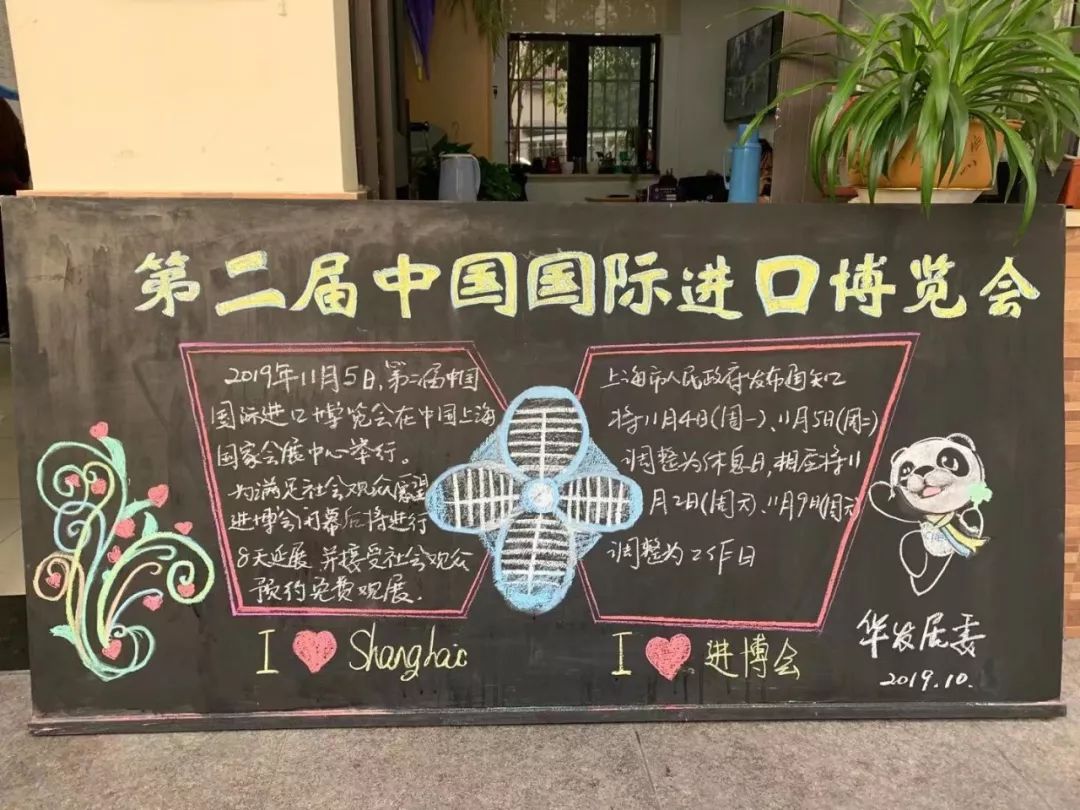 第二届中国国际进口博览会
2019年11月5日,第二届中国
国际进口博览会在中国上海
国家会展中心举行。
为满足社会观众愿望
进博会闭幕后将进行
8天延展 并接受社会观众
预约免费观展.
上海市人民政府发布通知
将11月4日(周一)、11月5日(周二)
调整为休息日,相应将11
月2日(周六)、11月9日(周六)
调整为工作日
I Shanghai
I 进博会
华发居委
2019.10.